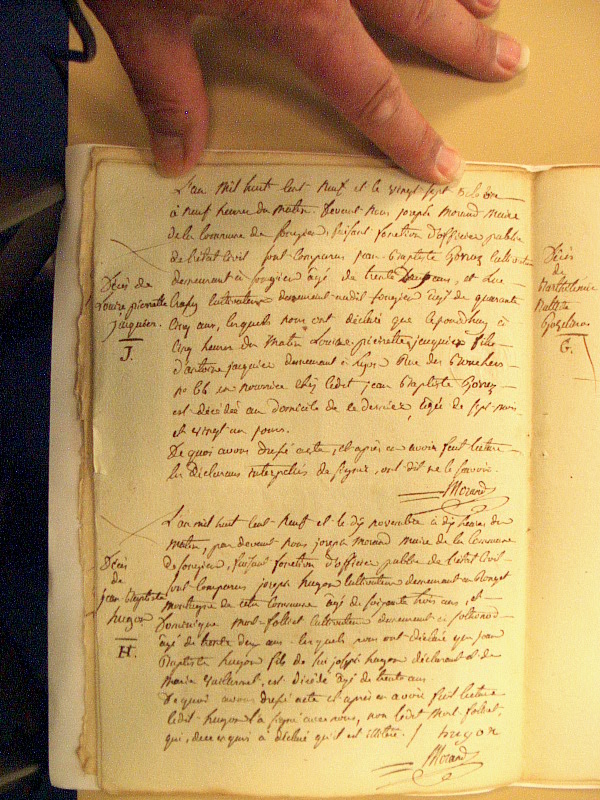 L'an mil huit cent neuf et le vingt sept octobre
à neuf heures du matin. Devant nous joseph Morand maire
de la commune de faisant fonction d'officier public
de l'état Civil sont comparus jean-Baptiste cultivateur
demeurant à âgé de trente ans, et
cultivateur demeurant audit âgé de quarante
Cinq ans, lesquels nous ont déclaré que à
cinq heures du matin Louise-pierrette jacquier fille
d'antoine jacquier demeurant à Lyon Rue des Bouchers
no 66 en nourrice chez ledit jean Baptiste
est décédée au domicile de ce dernier, âgée de sept mois
et vingt un jours.
De quoi avons dressé acte, et après en avoir fait lecture
les déclarans interpellés de signer, ont dit ne le savoir.
Morand
Décès de
Louise pierrette
jacquier.
J.
L'an mil huit cent neuf et le dix novembre à dix heures du
matin, par devant nous joseph Morand maire de la Commune
de faisant fonction d'officier public de l'état Civil
sont comparus joseph hugon cultivateur demeurant
montagne de cette Commune âgé de soixante trois ans, et
Dominique mort-folliet cultivateur demeurant
âgé de trente deux ans lesquels nous ont déclaré que jean
Baptiste hugon fils de lui joseph hugon déclarant et de
marie est décédé âgé de trente ans
De quoi avons dressé acte et après en avoir fait lecture
ledit hugon l'a signé avec nous, non ledit mort-follet
qui, de ce enquis a déclaré qu'il est illitéré. hugon
Morand
Décès
de
jean Baptiste
hugon
H.
Décès
de
Barthelemie
G.